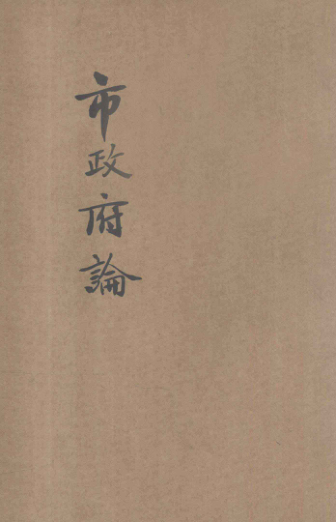 市政府論